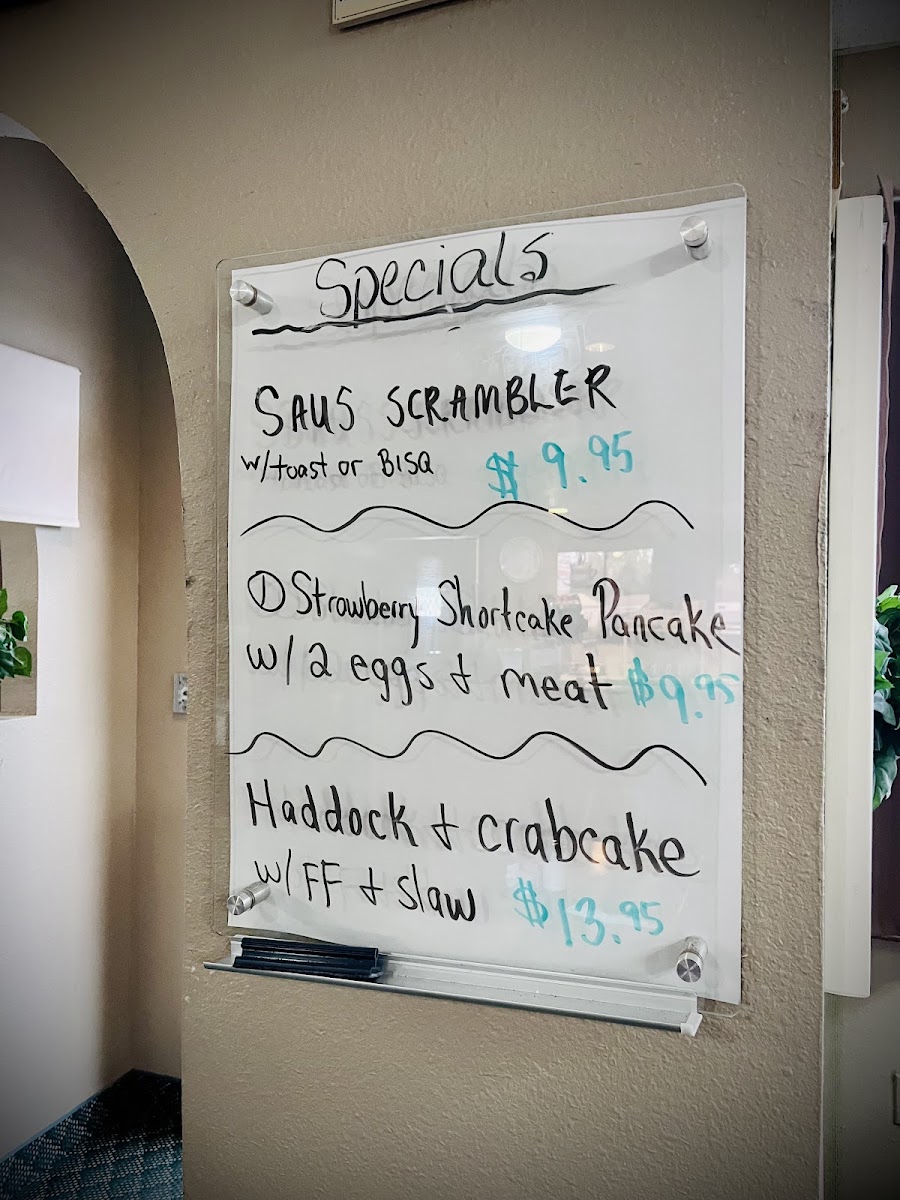 Specials
SAUS SCRAMBLER
w/toast or BISQ $9.95
① Strawberry Shortcake Pancake
w/2 eggs & meat $9.95
Haddock & crabcake
w/FF & slaw $13.95